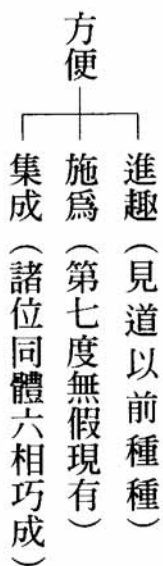 方便
進趣（見道以前種種）
施爲（第七度無假現有）
集成（諸位同體六相巧成）